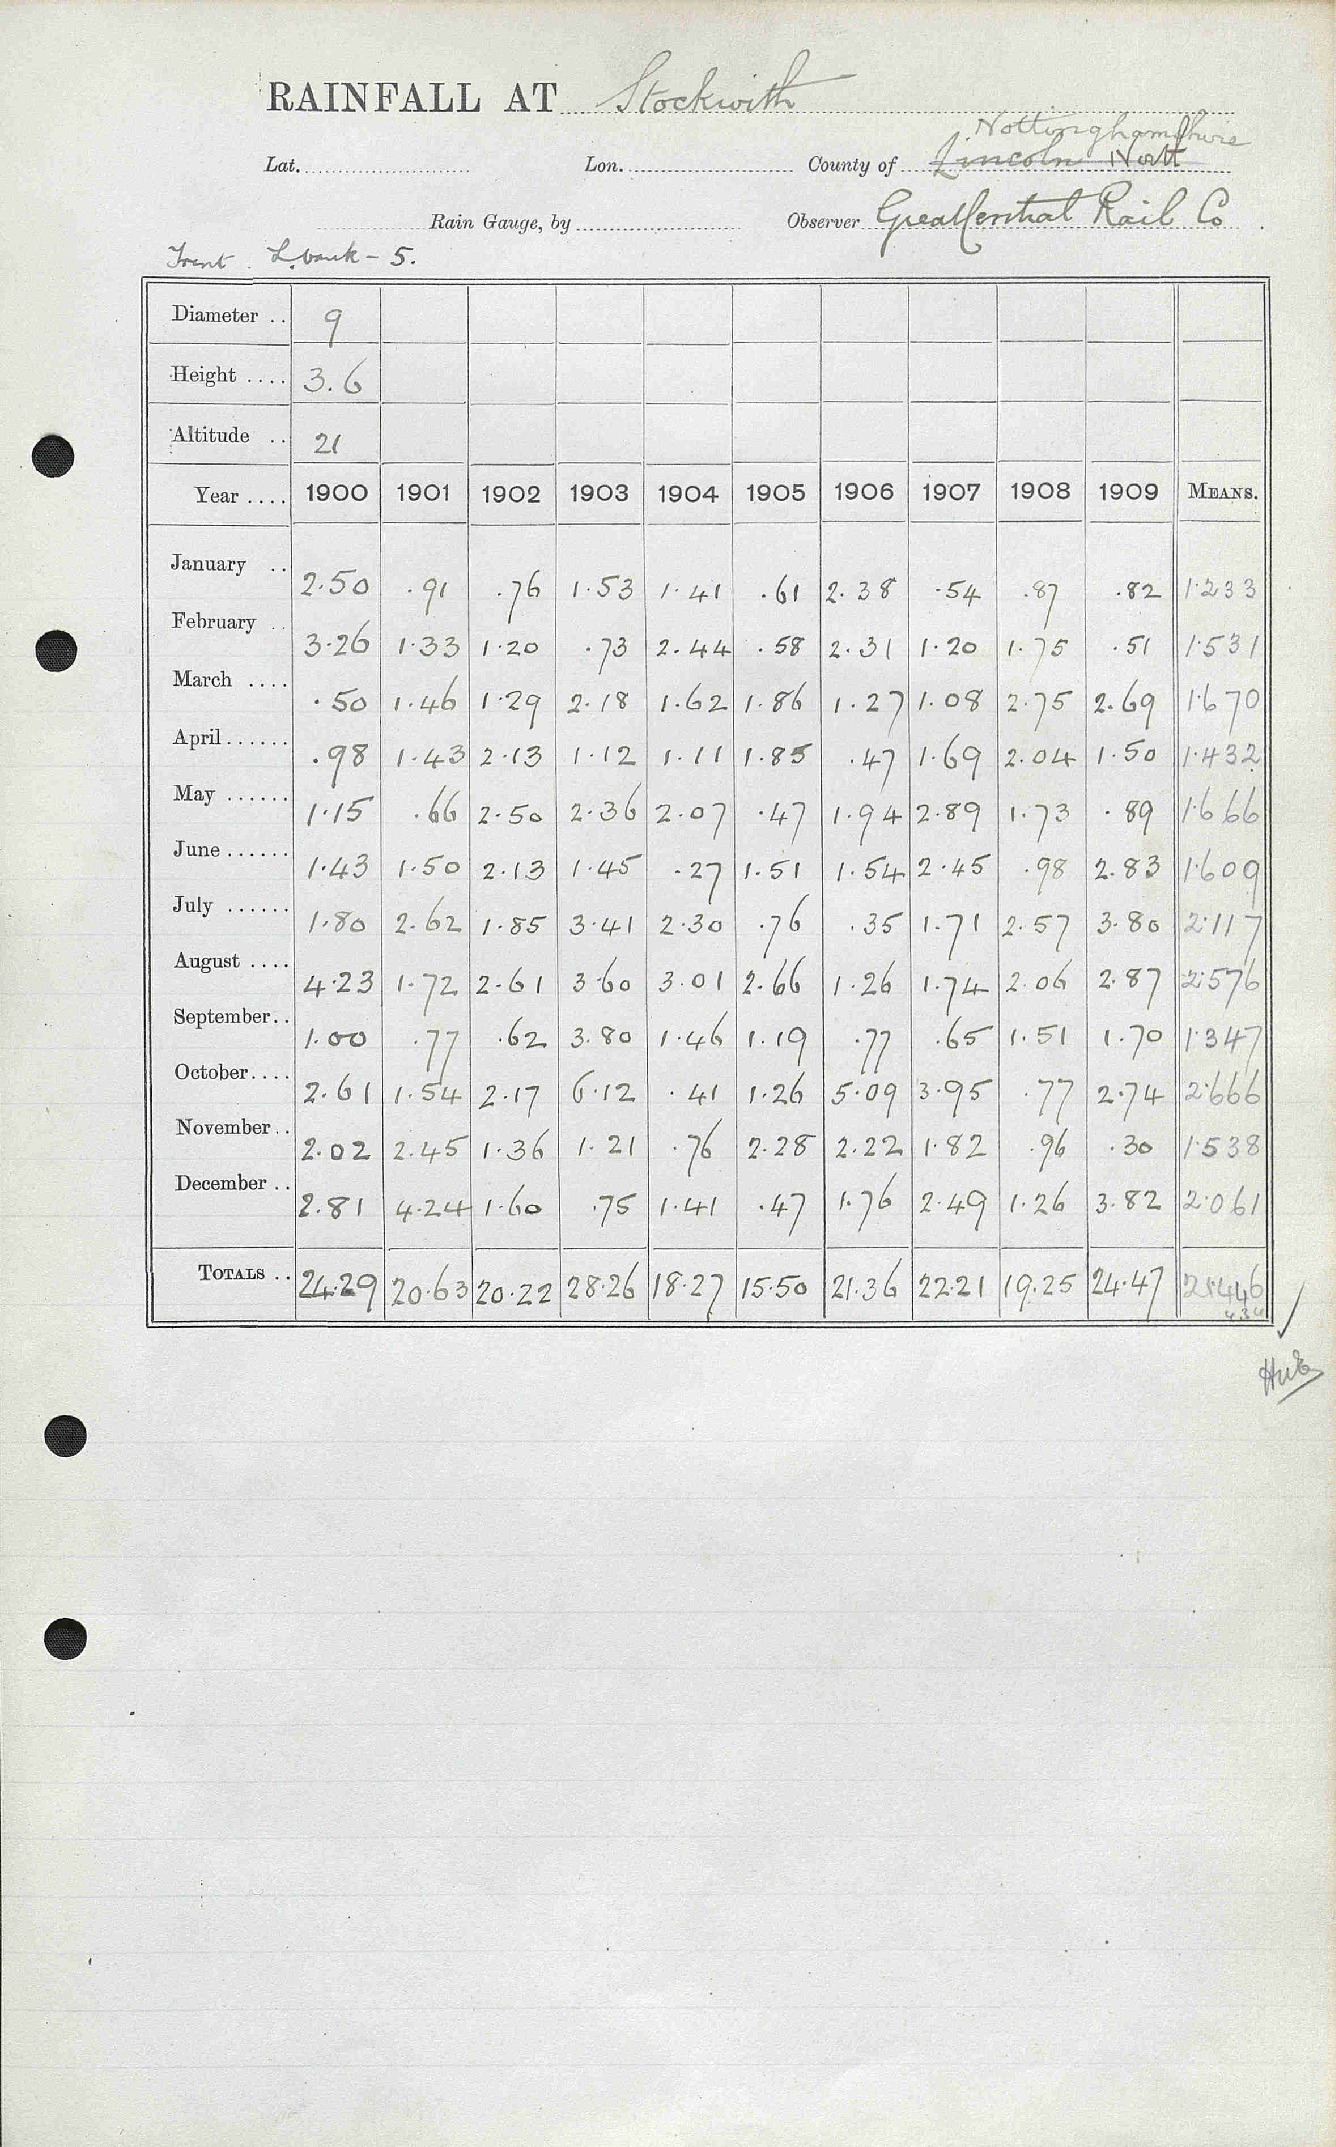 RAINFALL AT Stockwith
Nottinghamshire
Lat. Lon. County of Lincoln Nott
Rain Gauge, by Observer Great Central Rail Co
Trent L. bank - 5.
Diameter .. 9
Height .... 3.6
Altitude .. 21
Year .... 1900 1901 1902 1903 1904 1905 1906 1907 1908 1909 MEANS.
January .. 2.50 .91 .76 1.53 1.41 .61 2.38 .54 .87 .82 1.233
February .. 3.26 1.33 1.20 .73 2.44 .58 2.31 1.20 1.75 .51 1.531
March .... .50 1.46 1.29 2.18 1.62 1.86 1.27 1.08 2.75 2.69 1.670
April...... .98 1.43 2.13 1.12 1.11 1.85 .47 1.69 2.04 1.50 1.432
May ...... 1.15 .66 2.50 2.36 2.07 .47 1.94 2.89 1.73 .89 1.666
June ...... 1.43 1.50 2.13 1.45 .27 1.51 1.54 2.45 .98 2.83 1.609
July ...... 1.80 2.62 1.85 3.41 2.30 .76 .35 1.71 2.57 3.80 2.117
August .... 4.23 1.72 2.61 3.60 3.01 2.66 1.26 1.74 2.06 2.87 2.576
September.. 1.00 .77 .62 3.80 1.46 1.19 .77 .65 1.51 1.70 1.347
October.... 2.61 1.54 2.17 6.12 .41 1.26 5.09 3.95 .77 2.74 2.666
November.. 2.02 2.45 1.36 1.21 .76 2.28 2.22 1.82 .96 .30 1.538
December .. 2.81 4.24 1.60 .75 1.41 .47 1.76 2.49 1.26 3.82 2.061
TOTALS .. 24.29 20.63 20.22 28.26 18.27 15.50 21.36 22.21 19.25 24.47 21.446